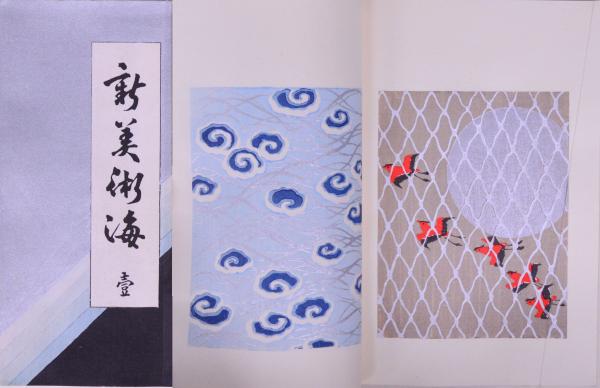 新美術海
壹